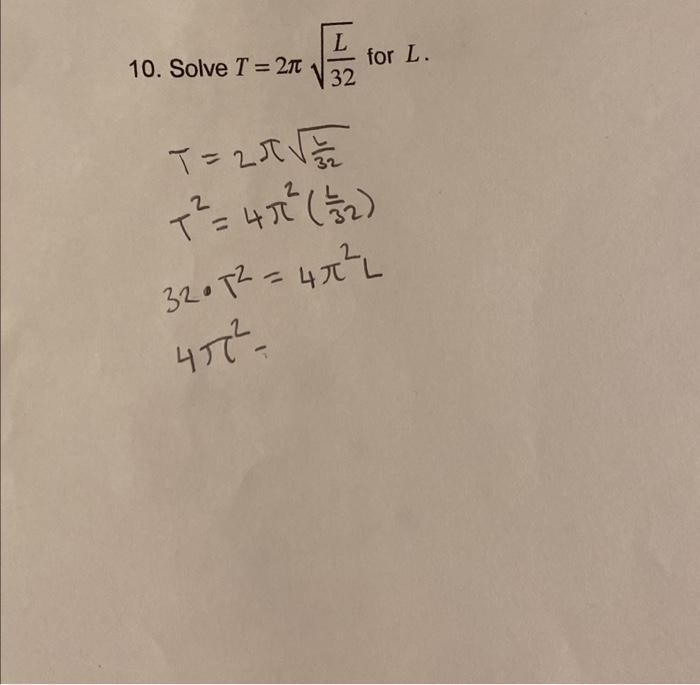 10. Solve T = 2π √(L/32) for L.
T = 2π √(L/32)
T² = 4π² (L/32)
32 • T² = 4π² L
4π² =